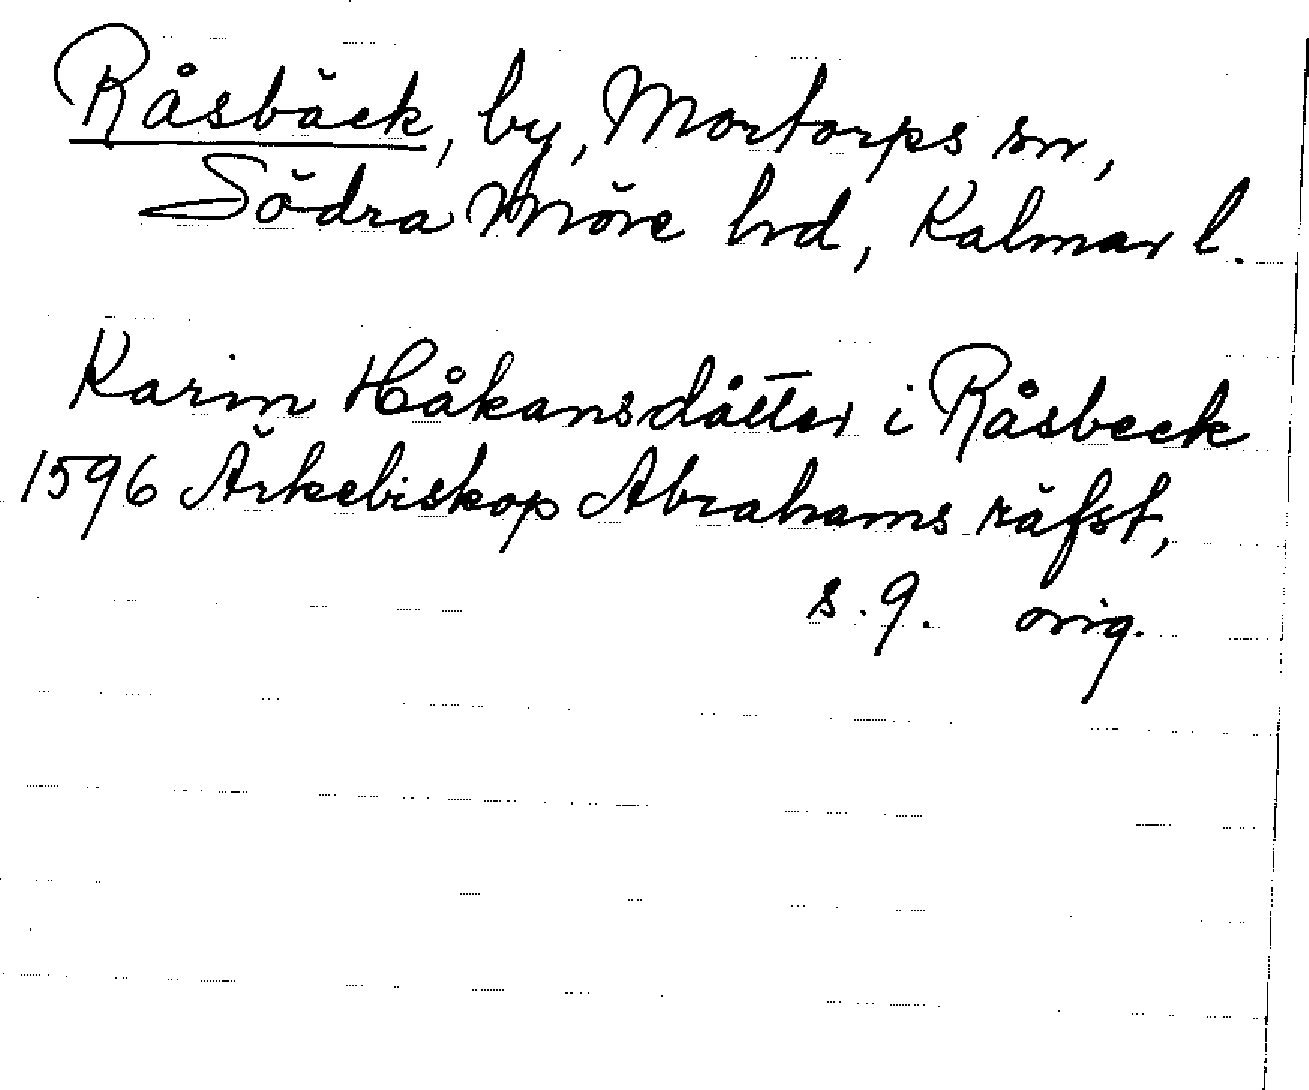 Råsbäck, by, Mortorps sn,
Södra Möre hd, Kalmar l.
Karin Håkansdåtter i Råsbeck
1596 Ärkebiskop Abrahams räfst,
s. 9. orig.